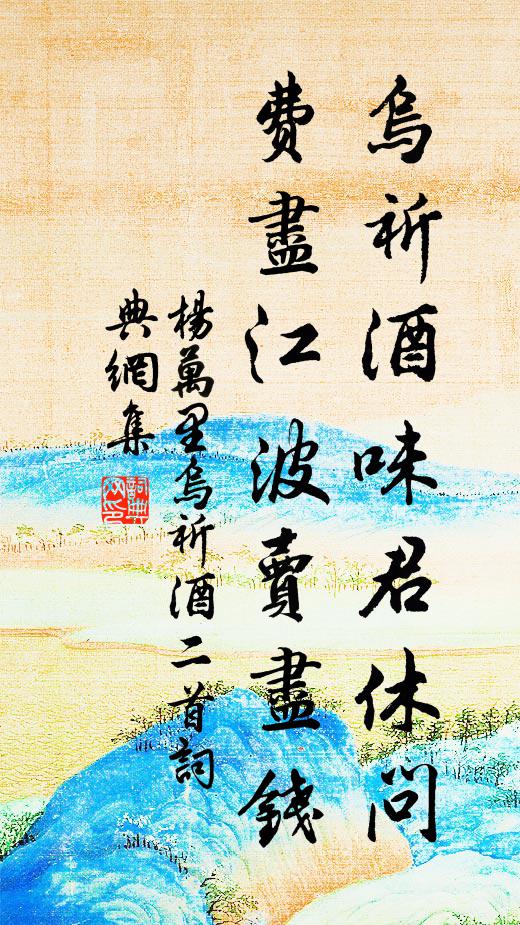 烏祈酒味君休問
費盡江波賣盡錢
楊萬里烏祈酒二首詞
典網集